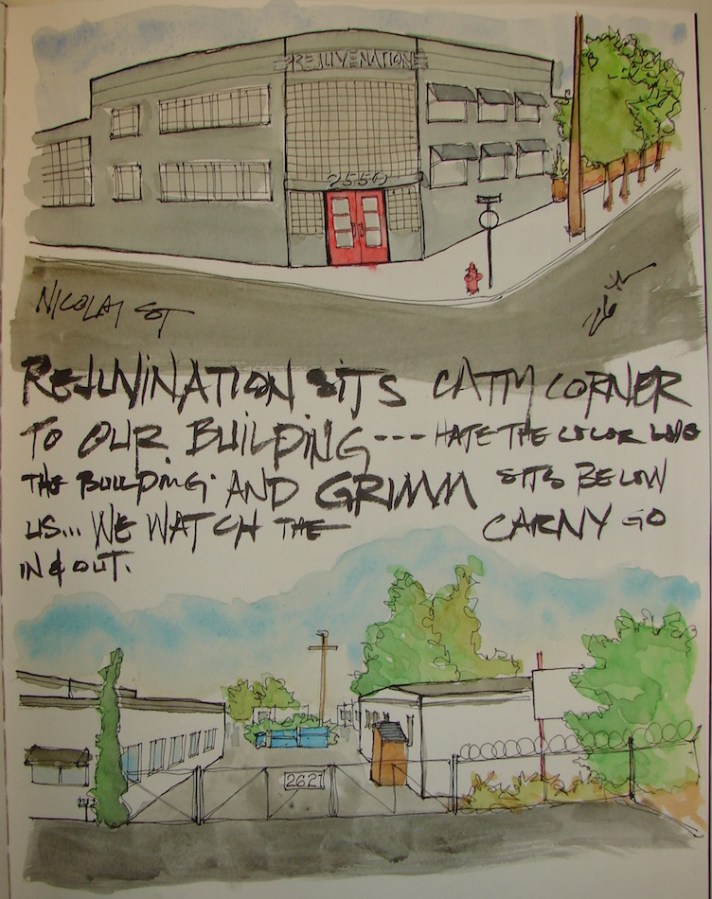 REJUVENATION
2550
NICOLAI ST
REJUVINATION SITS CATTY CORNER
TO OUR BUILDING--- HATE THE COLOR LOVE
THE BUILDING. AND GRIMM SITS BELOW
US... WE WATCH THE CARNY GO
IN & OUT.
2621